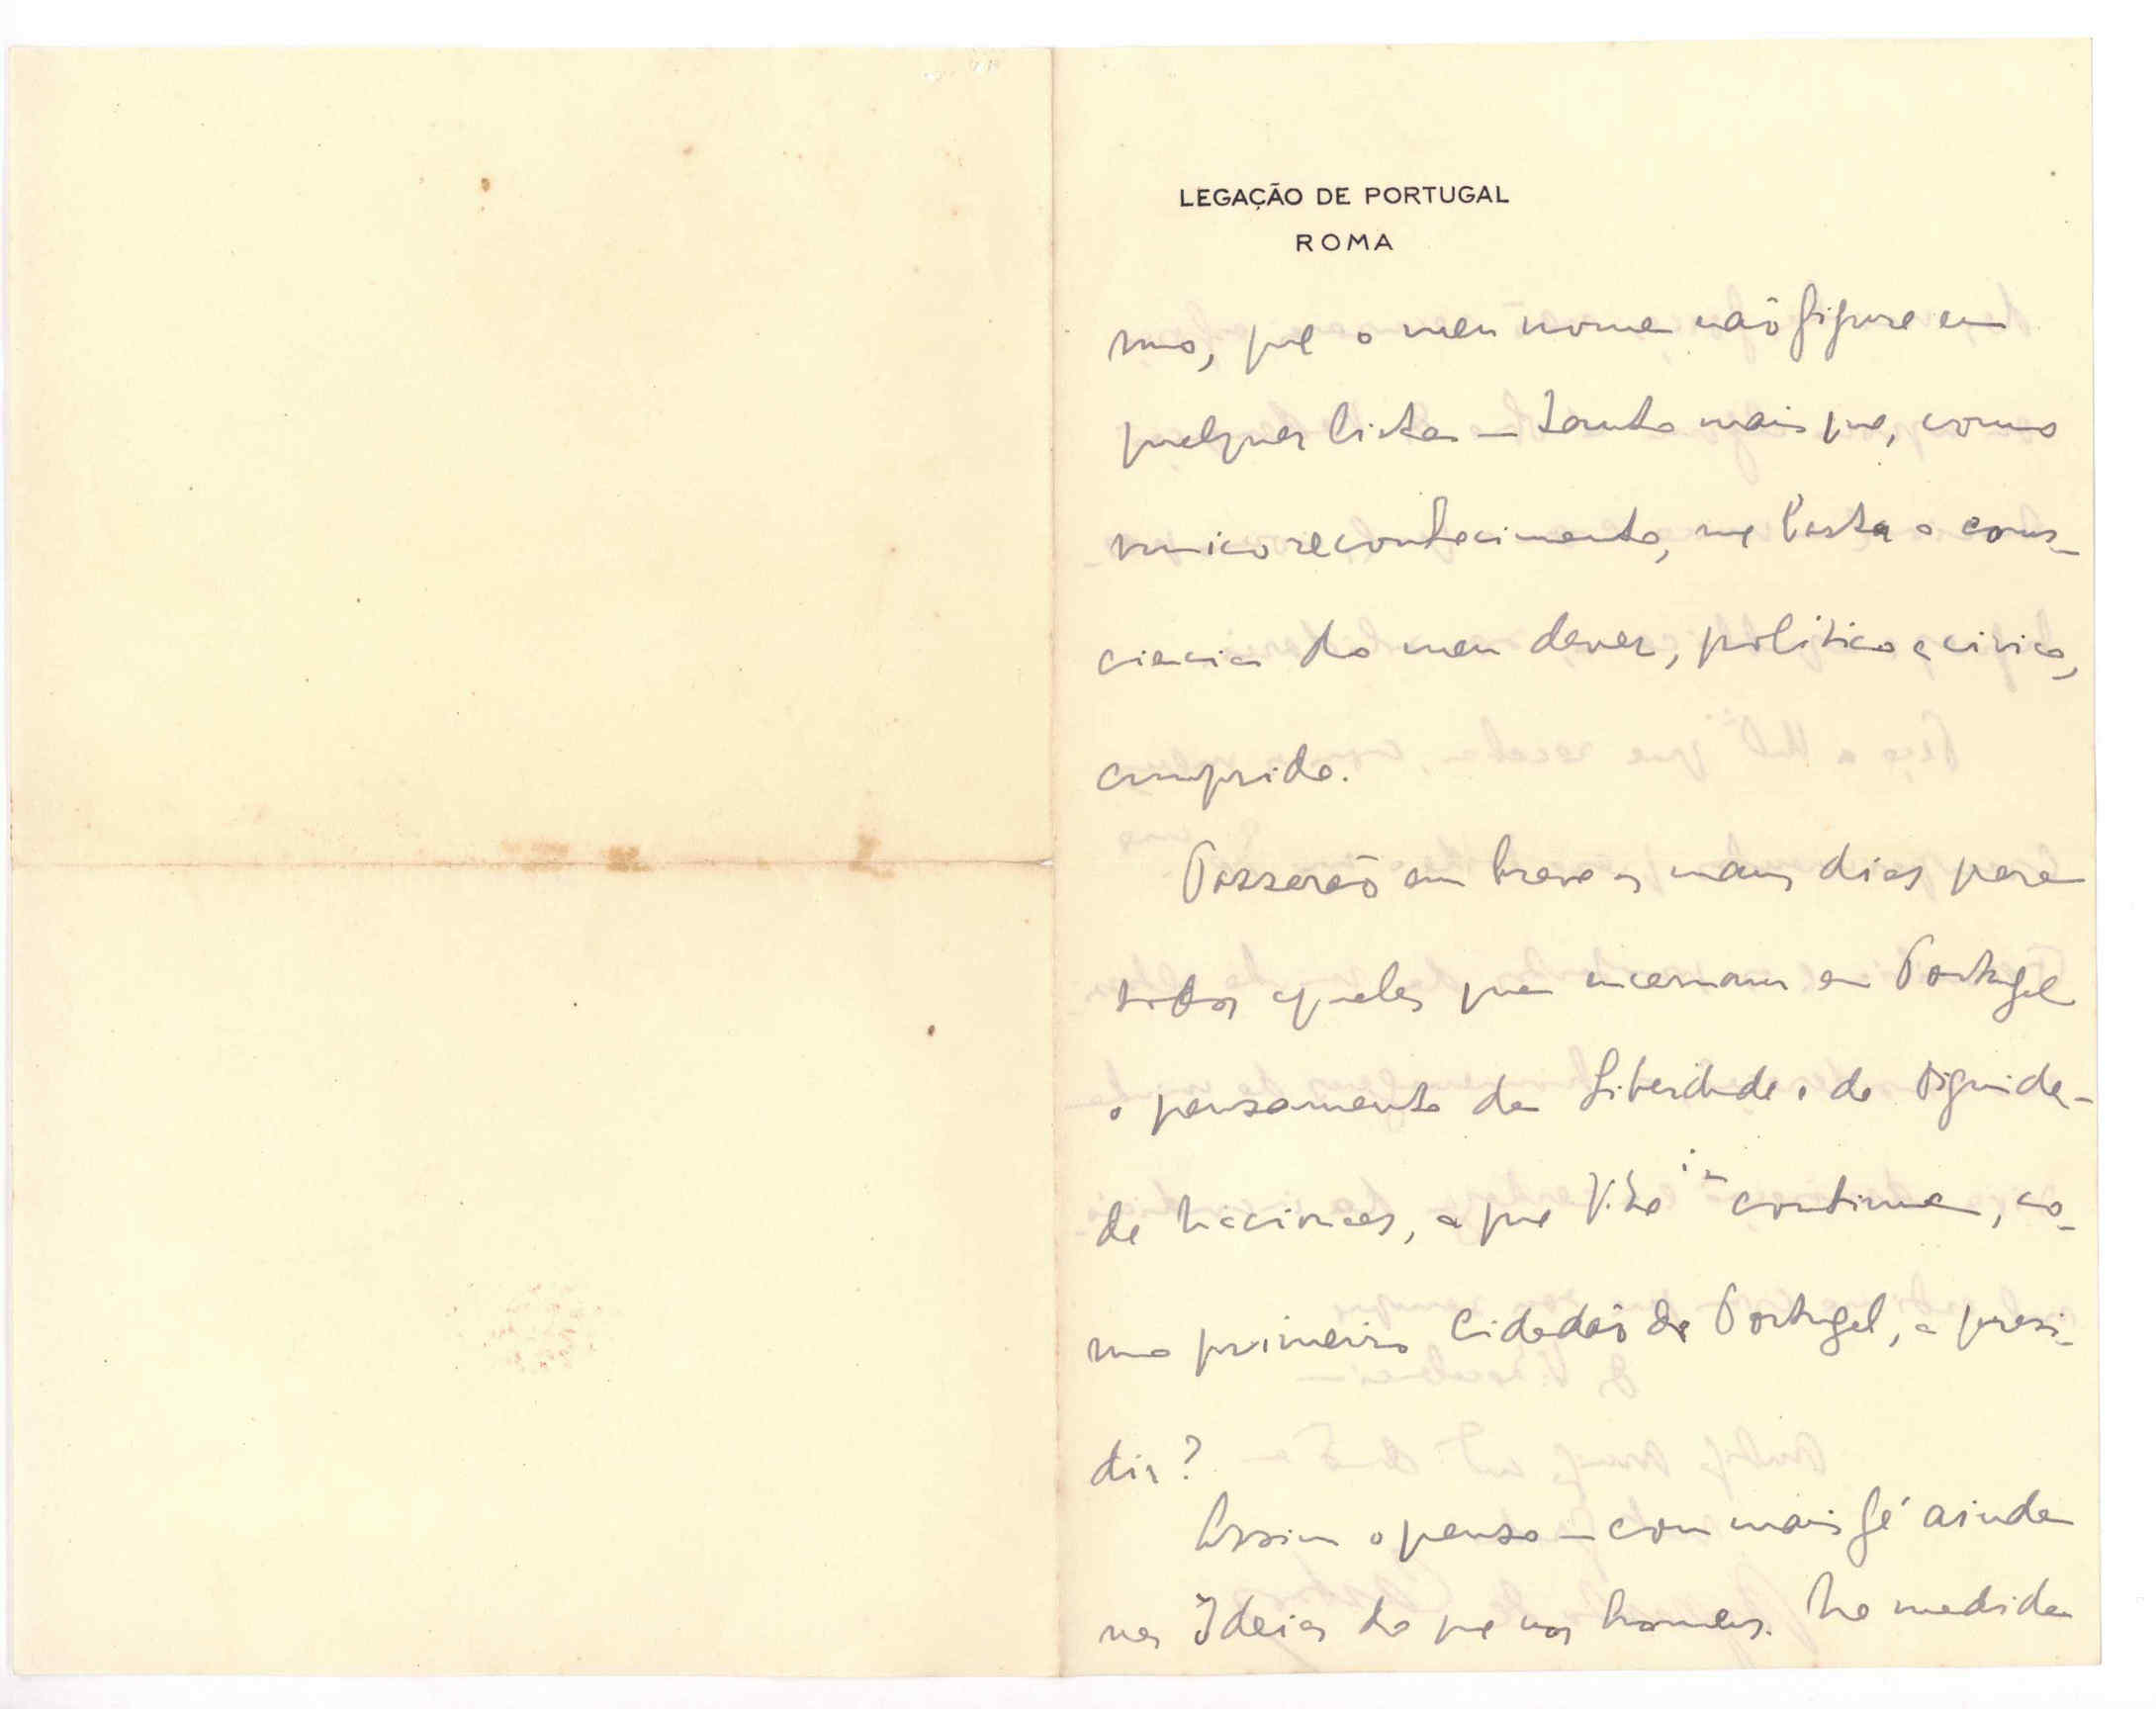 LEGAÇÃO DE PORTUGAL
ROMA
mo, que o meu nome não figure em
qualquer lista — tanto mais que, como
unico reconhecimento, me basta a cons-
ciencia do meu dever, politico e civico,
cumprido.
Passarão em breve os maus dias para
todos aqueles que incarnam em Portugal
o pensamento da Liberdade e da Dignida-
de Nacionaes, a que V. Exia continua, co-
mo primeiro Cidadão de Portugal, a presi-
dir?
Assim o penso — com mais fé ainda
nas Ideias do que nos homens. Na medida